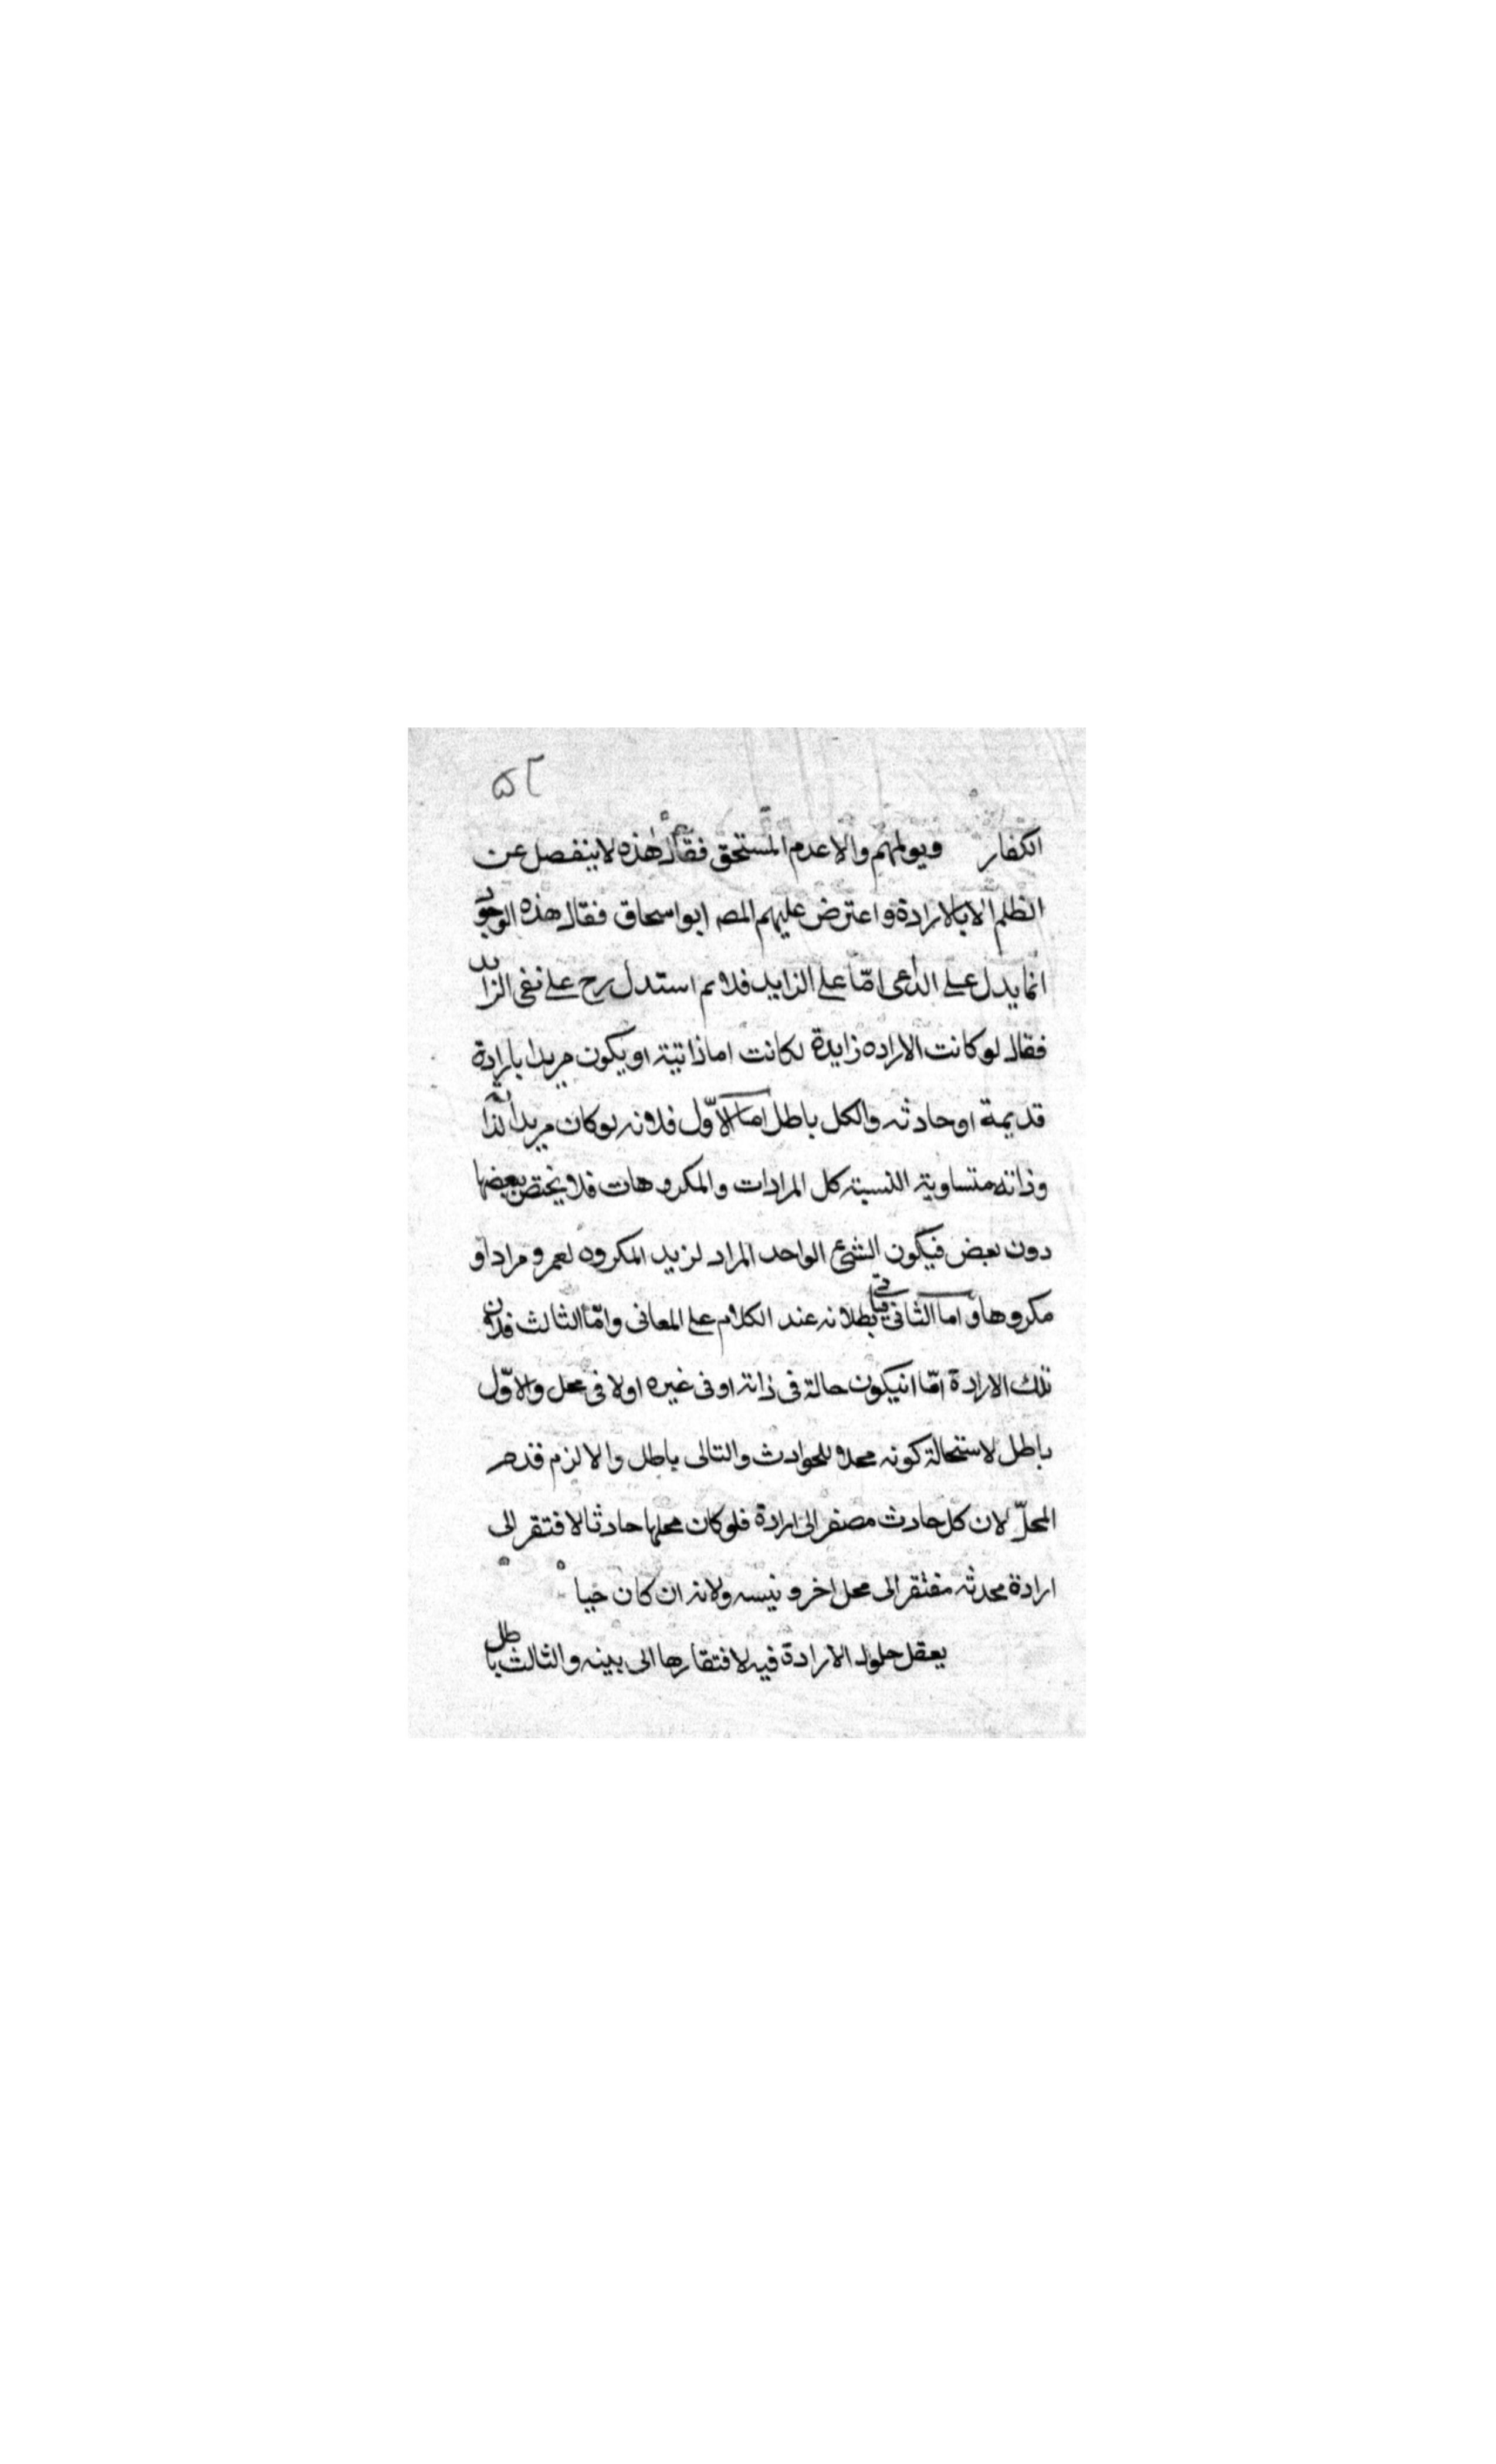 ۵۲
الكفار ويولمهم والا عدم المستحق فقال هذه لا ينفصل عن
الظلم الا بالارادة واعترض عليهم المصه ابو اسحاق فقال هذه الوجوه
انما يدل على الداعى امّا على الزايد فلا ثم استدل رح على نفى الزايد
فقال لو كانت الاراده زايدة لكانت اما ذاتية او يكون مريدا بارادة
قديمة او حادثه والكل باطل اما الاوّل فلانه لو كان مريدا لذاته
وذاته متساوية النسبة كل المرادات والمكروهات فلا يختص ببعضها
دون بعض فيكون الشئ الواحد المراد لزيد المكروه لعمرو مرادا و
مكروها و اما الثانى فياتى بطلانه عند الكلام على المعانى وامّا الثالث فلان
تلك الارادة امّا انيكون حالة فى ذاته او فى غيره او لا فى محل والاوّل
باطل لاستحالة كونه محلا للحوادث والتالى باطل والا لزم قدم
المحلّ لان كل حادث مصفر الى ارادة فلو كان محلها حادثا لافتقر الى
ارادة محدثه مفتقر الى محل اخر و ولانه ان كان
يعقل حلول الارادة فيه لافتقارها الى بينه والثالث باطل